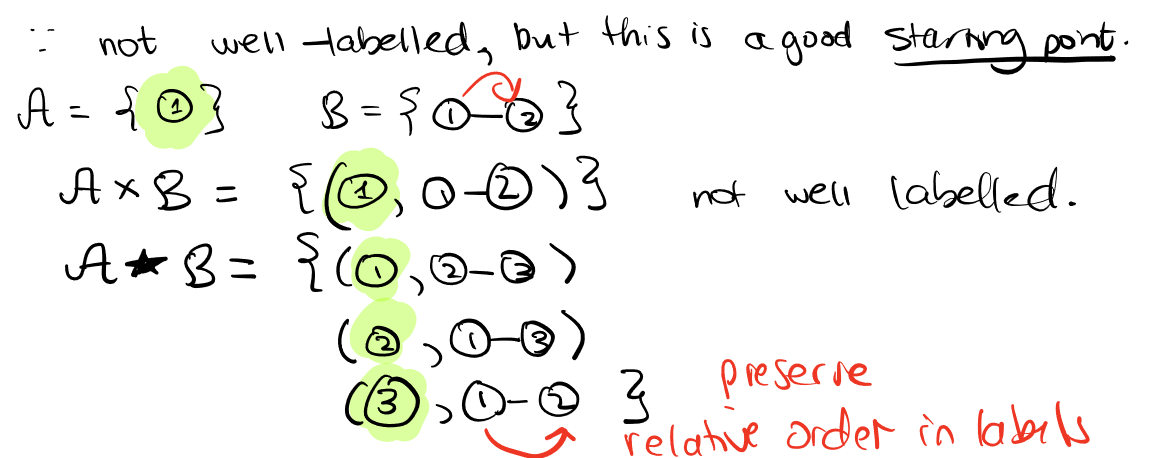 ∵ not well-labelled, but this is a good starting point.
A = {①} B = {①–②}
A × B = {(①, ①–②)} not well labelled.
A ★ B = {(①, ②–③)
(②, ①–③)
(③, ①–②) }
preserve
relative order in labels